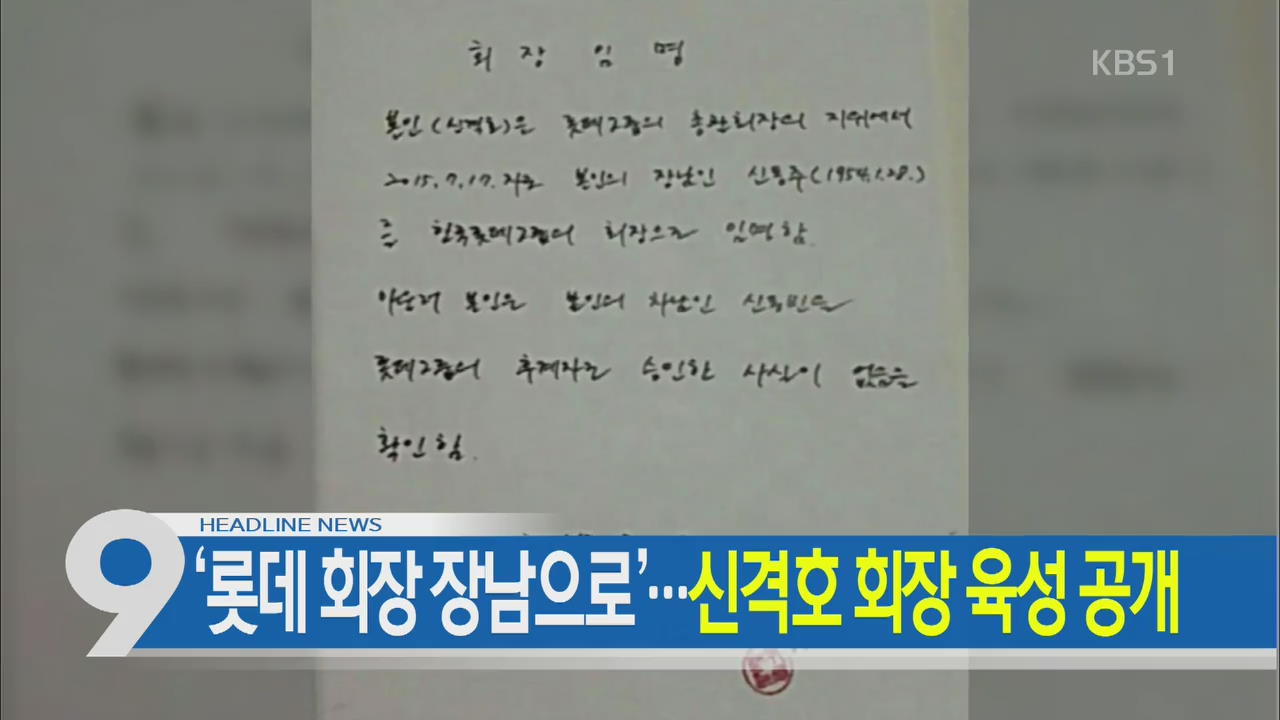 KBS1
회 장 임 명
본인(신격호)은 롯데그룹의 총괄회장의 지위에서
2015.7.17.자로 본인의 장남인 신동주(1954.1.28.)
를 한국롯데그룹의 회장으로 임명함.
아울러 본인은 본인의 차남인 신동빈을
롯데그룹의 후계자로 승인한 사실이 없음을
확인함.
HEADLINE NEWS
9
‘롯데 회장 장남으로’…신격호 회장 육성 공개